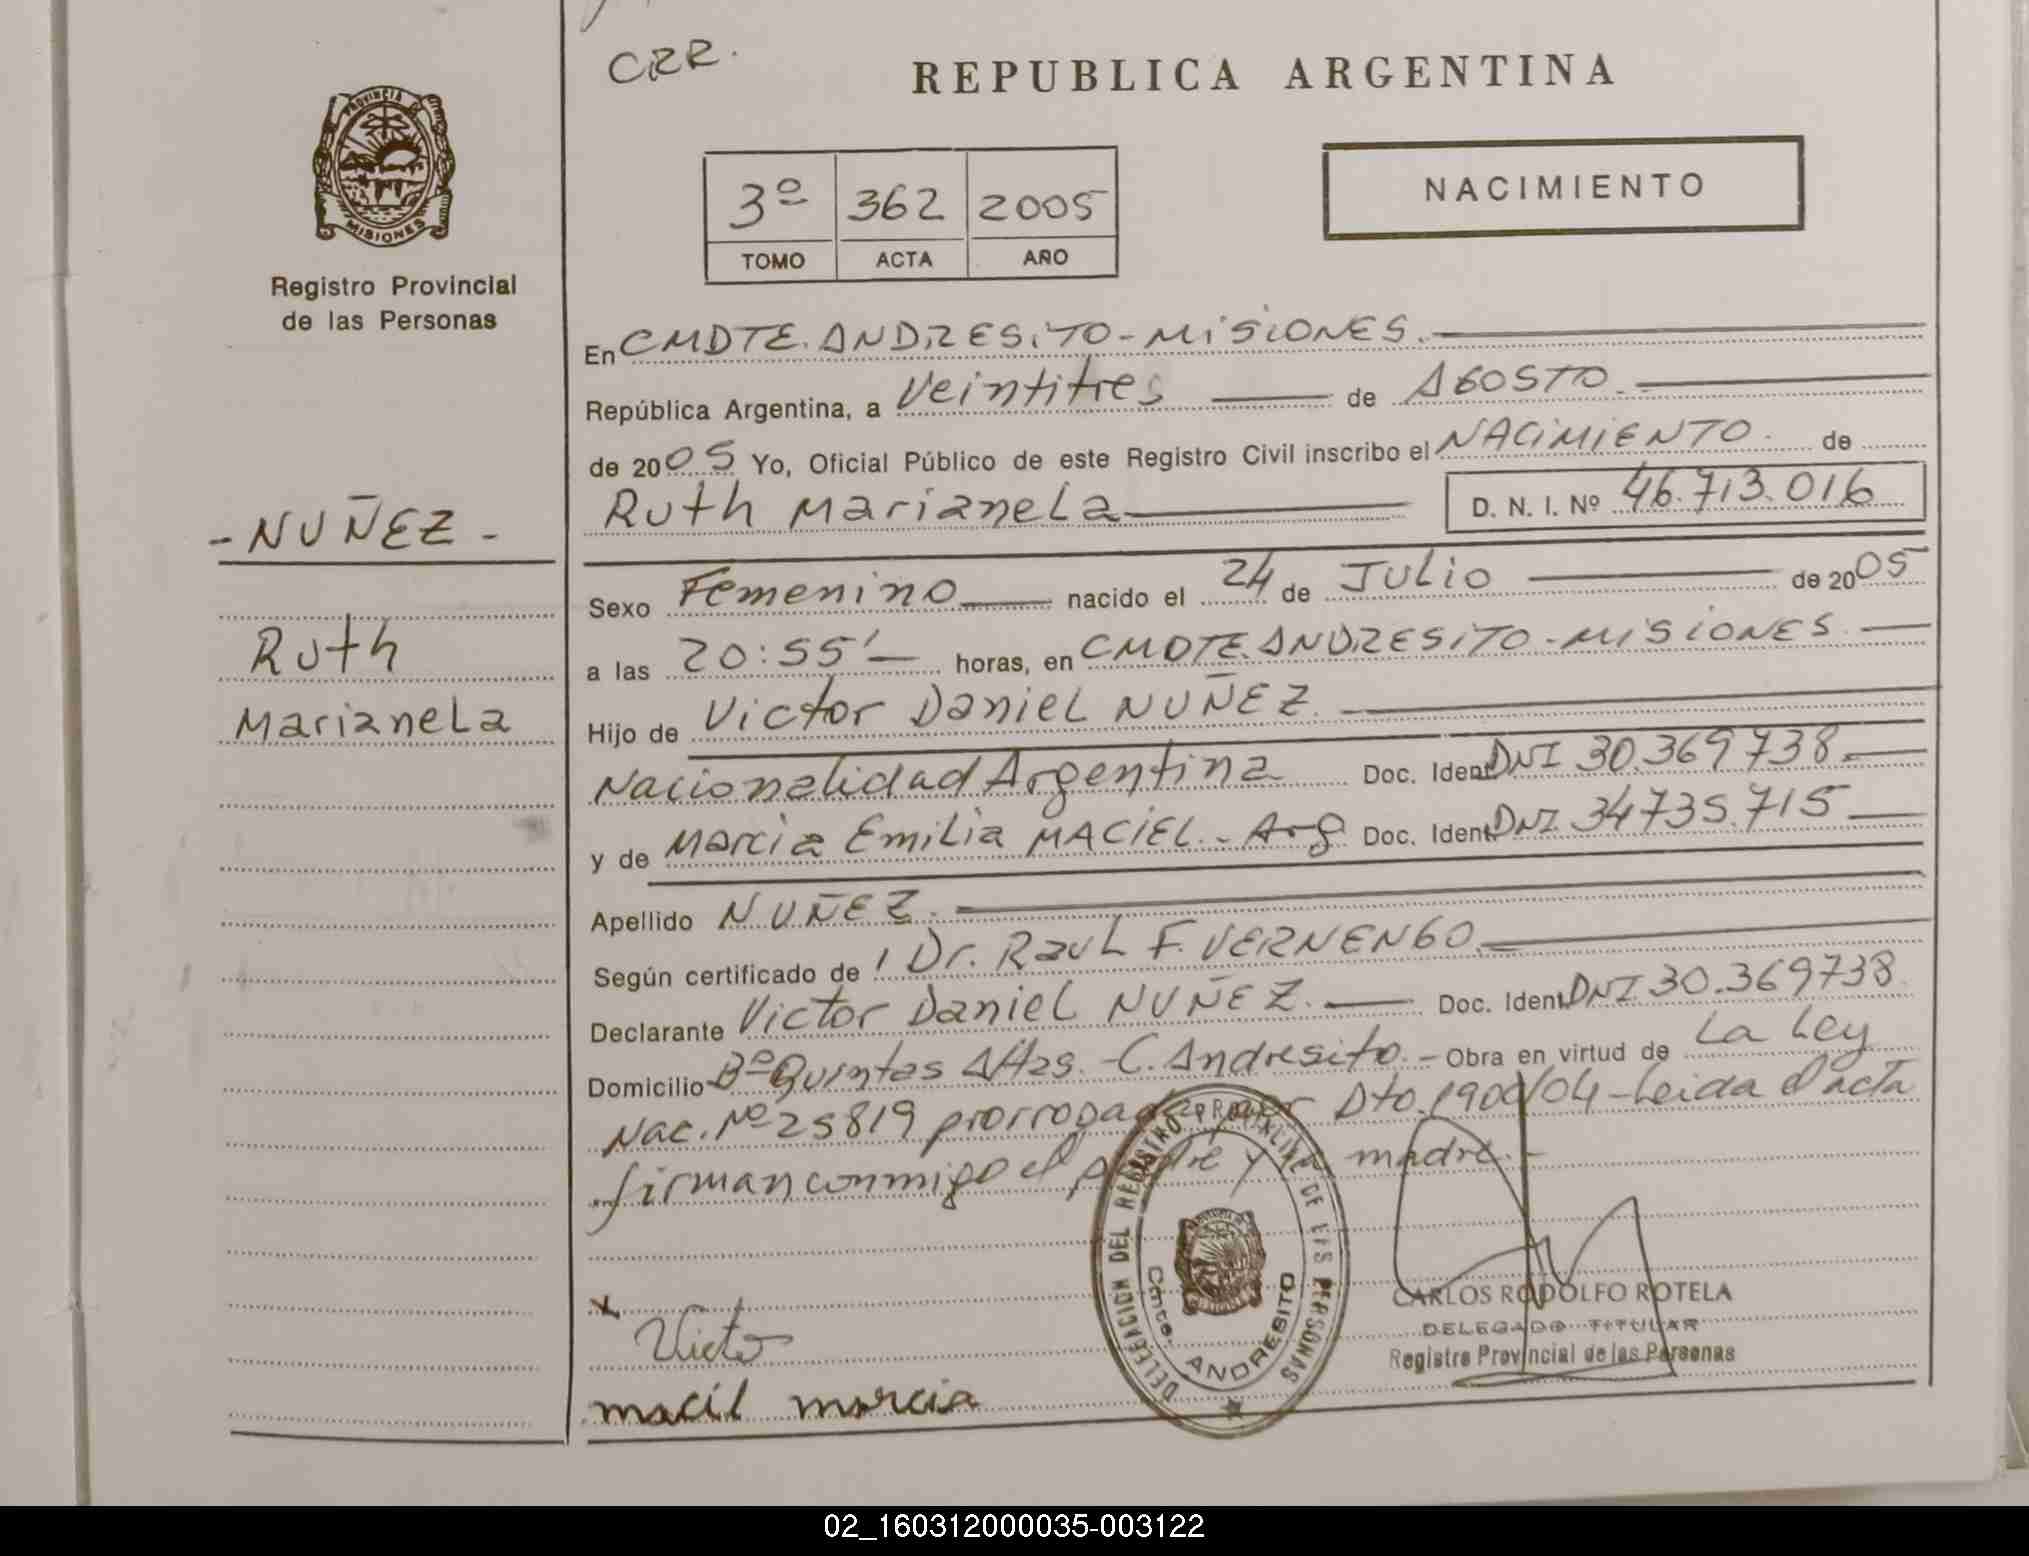 CRR.
REPUBLICA ARGENTINA
PROVINCIA DE
MISIONES
Registro Provincial
de las Personas
3º 362 2005
TOMO ACTA AÑO
NACIMIENTO
En CMDTE. ANDRESITO - MISIONES.
República Argentina, a Veintitres de AGOSTO.
de 2005 Yo, Oficial Público de este Registro Civil inscribo el NACIMIENTO. de
Ruth Marianela D. N. I. Nº 46.713.016
- NUÑEZ -
Ruth
Marianela
Sexo Femenino nacido el 24 de JULIO de 2005
a las 20:55' horas, en CMDTE. ANDRESITO - MISIONES.
Hijo de Victor Daniel NUÑEZ.
Nacionalidad Argentina Doc. Ident. DNI 30.369738.
y de Marcia Emilia MACIEL. - Arg Doc. Ident. DNI. 34735.715
Apellido NUÑEZ.
Según certificado de Dr. Raul F. VERNENGO.
Declarante Victor Daniel NUÑEZ. Doc. Ident. DNI 30.369738.
Domicilio Bº Quintas Altas. - C. Andresito. - Obra en virtud de La Ley
Nac. Nº 25819 prorrogada por Dto. 1900/04 - Leida el acta
firman conmigo el padre y madre. -
x
Victo
macil marcia
DELEGACION DEL REGISTRO PROVINCIAL DE LAS PERSONAS
Cmte. ANDRESITO
CARLOS RODOLFO ROTELA
DELEGADO TITULAR
Registro Provincial de las Personas
02_160312000035-003122